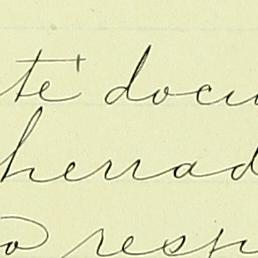 te docu
herrad
o resp